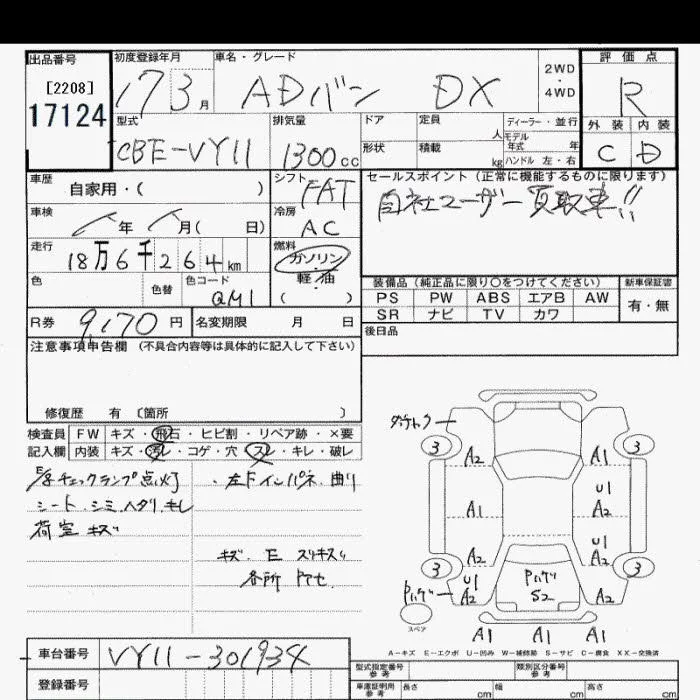 出品番号 初度登録年月 車名・グレード 2WD・4WD 評価点
[2208]
17124
17 3月 ADバン DX R
型式 排気量 ドア 定員 人 ディーラー・並行 外装 内装
CBE-VY11 1300cc 形状 積載 kg モデル年式 年 ハンドル 左・右 C D
車歴 自家用・( ) シフト FAT セールスポイント(正常に機能するものに限ります)
自社ユーザー買取車!!
車検 年 月( 日) 冷房 AC
走行 18万6千264km 燃料 ガソリン・軽油( )
色 色替 色コード QM1
装備品(純正品に限り○をつけてください) 新車保証書
PS PW ABS エアB AW 有・無
SR ナビ TV カワ
R券 9,170円 名変期限 月 日 後日品
注意事項申告欄(不具合内容等は具体的に記入して下さい)
修復歴 有 〔箇所 〕
検査員 FW キズ・飛石・ヒビ割・リペア跡・×要
記入欄 内装 キズ・汚レ・コゲ・穴・スレ・キレ・破レ
チェックランプ点灯 ・左Fインパネ 曲り
シート シミ ヘタリ キレ
荷室 キズ
キズ E スリキズ
各所
3 A2 A1 3
A1 U1 A2
A2 U1 A2
3 U1 A2 Pハゲ S2 A2 3
Pハゲ
スペア
A1 A1 A1
A-キズ E-エクボ U-凹み W-補修跡 S-サビ C-腐食 XX-交換済
車台番号 VY11-301934
登録番号
型式指定番号 参考 類別区分番号 参考
車庫証明用 参考 長さ cm 幅 cm 高さ cm